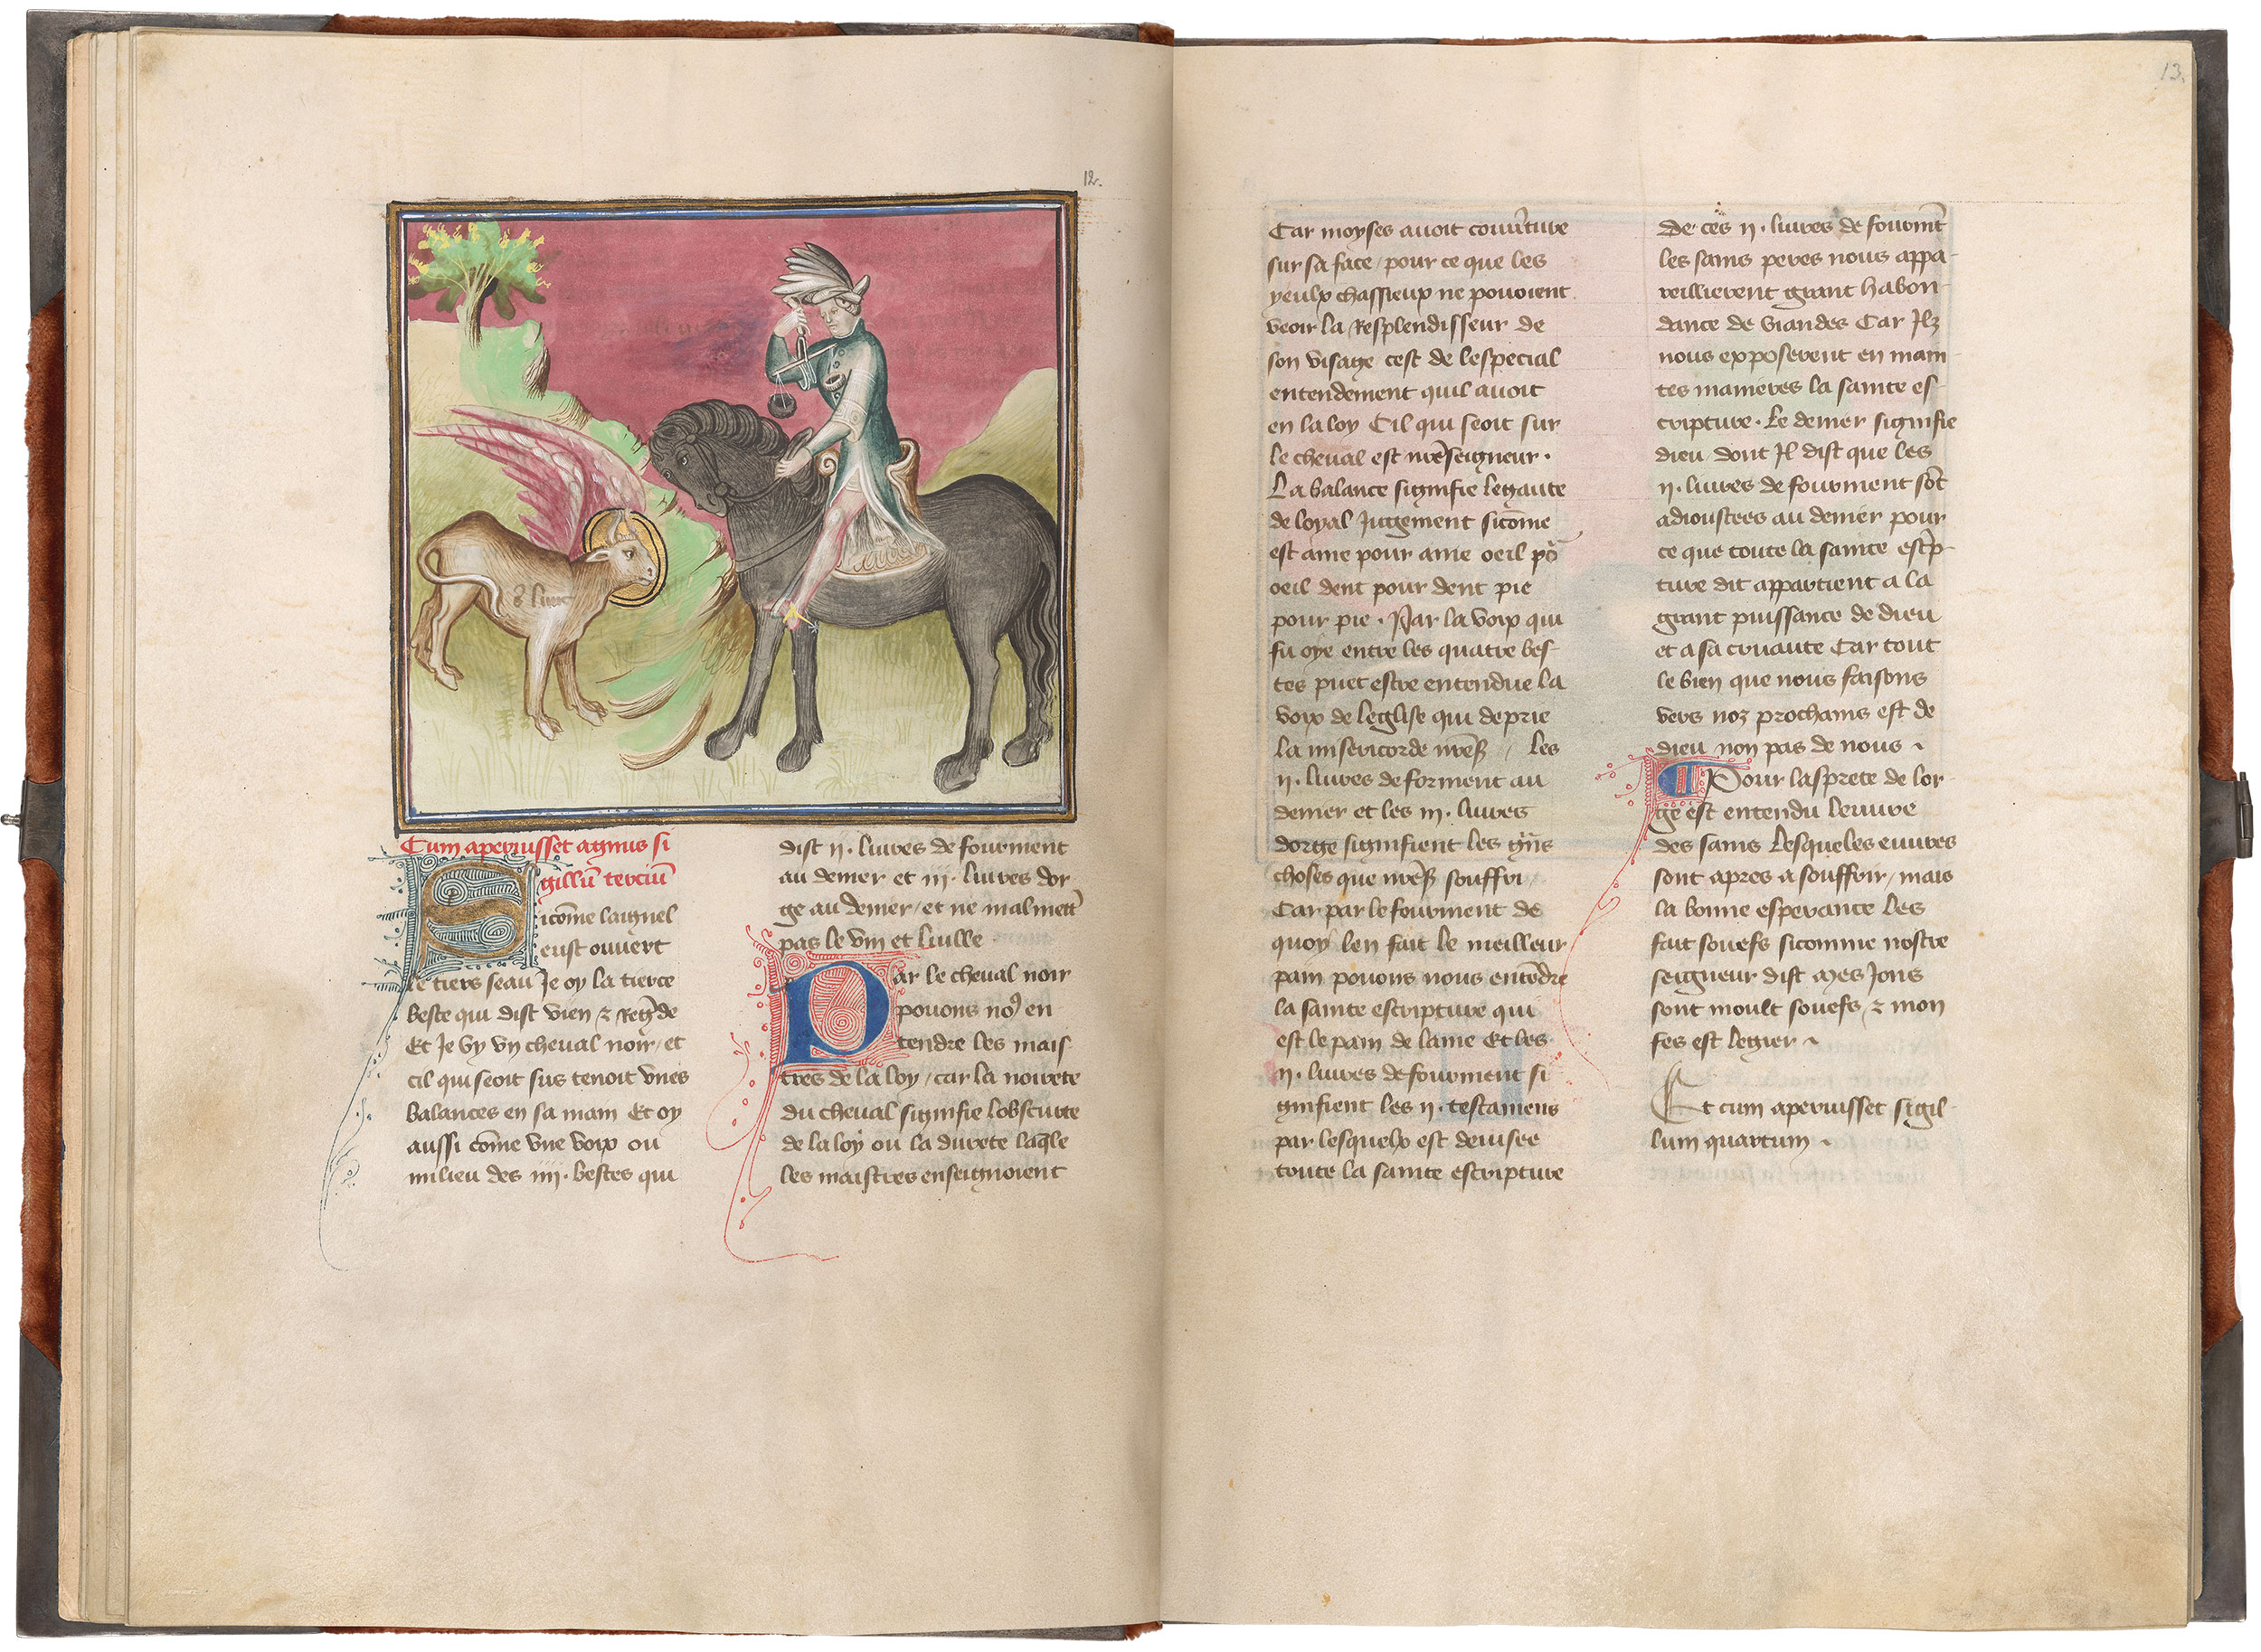 12.
S luc
Cum aperuisset agnus si
gillũ terciũ
Sicõme laignel
eust ouvert
le tiers seau Je oy la tierce
beste qui dist vien & Regñde
Et Je vy vn cheval noir / et
cil qui seoit sus tenoit vnes
balances en sa main Et oy
aussi cõme vne voix ou
milieu des iiii. bestes qui
dist ii. livres de fourment
au denier et iii. livres dor
ge au denier / et ne malmett
pas le vin et luille
Par le cheval noir
povons no9 en
tendre les mais
tres de la loy / car la noirete
du cheval signifie lobscurte
de la loy ou la durete laq̃le
les maistres enseignoient
13.
Car moyses avoit cou̾ture
sur sa face / pour ce que les
yeulx chassieux ne povoient
veoir la Resplendisseur de
son visage cest de lespecial
entendement quil avoit
en la loy Cil qui seoit sur
le cheval est nr̃eseigneur.
La balance signifie legaute
de loyal Jugement sicõme
est ame pour ame oeil põ
oeil dent pour dent pie
pour pie. Par la voix qui
fu oye entre les quatre bes-
tes puet estre entendue la
voix de leglise qui deprie
la misericorde nr̃eß / les
ii. livres de forment au
denier et les iii. livres
dorge signifient les gñs
choses que nr̃eß souffri /
Car par le fourment de
quoy len fait le meilleur
pain povons nous entẽdre
la sainte escripture qui
est le pain de lame Et les
ii. livres de fourment si
gnifient les ii. testamens
par lesquelx est devisee
toute la sainte escripture
De ces ii. livres de fourmẽt
les sains peres nous appa-
reillierent grant habon-
dance de viandes Car Jlz
nous exposerent en main-
tes manieres la sainte es-
cripture. Le denier signifie
dieu dont Jl dist que les
ii. livres de fourment sõt
adioustees au denier pour
ce que toute la sainte escp̃-
ture dit appartient a la
grant puissance de dieu
et a sa cruaute Car tout
le bien que nous faisons
vers noz prochains est de
dieu non pas de nous
¶ Pour lasprete de lor-
ge est entendu leuvre
des sains Lesqueles euvres
sont aspres a souffrir / mais
la bonne esperance les
fait souefs sicomme nostre
seigneur dist Mes Jous
sont moult souefs & mon
fes est legier
Et cum aperuisset sigil-
lum quartum